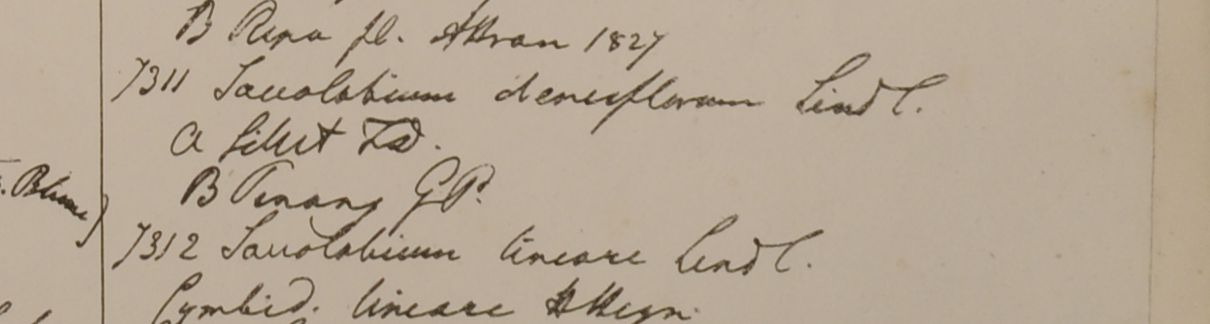 B Ripa fl. Attran 1827
7311 Saccolobium densiflorum Lindl.
a Silhet FD.
B Pinang GP.
. Blume)
7312 Saccolobium lineare Lindl.
Cymbid. lineare Heyn.